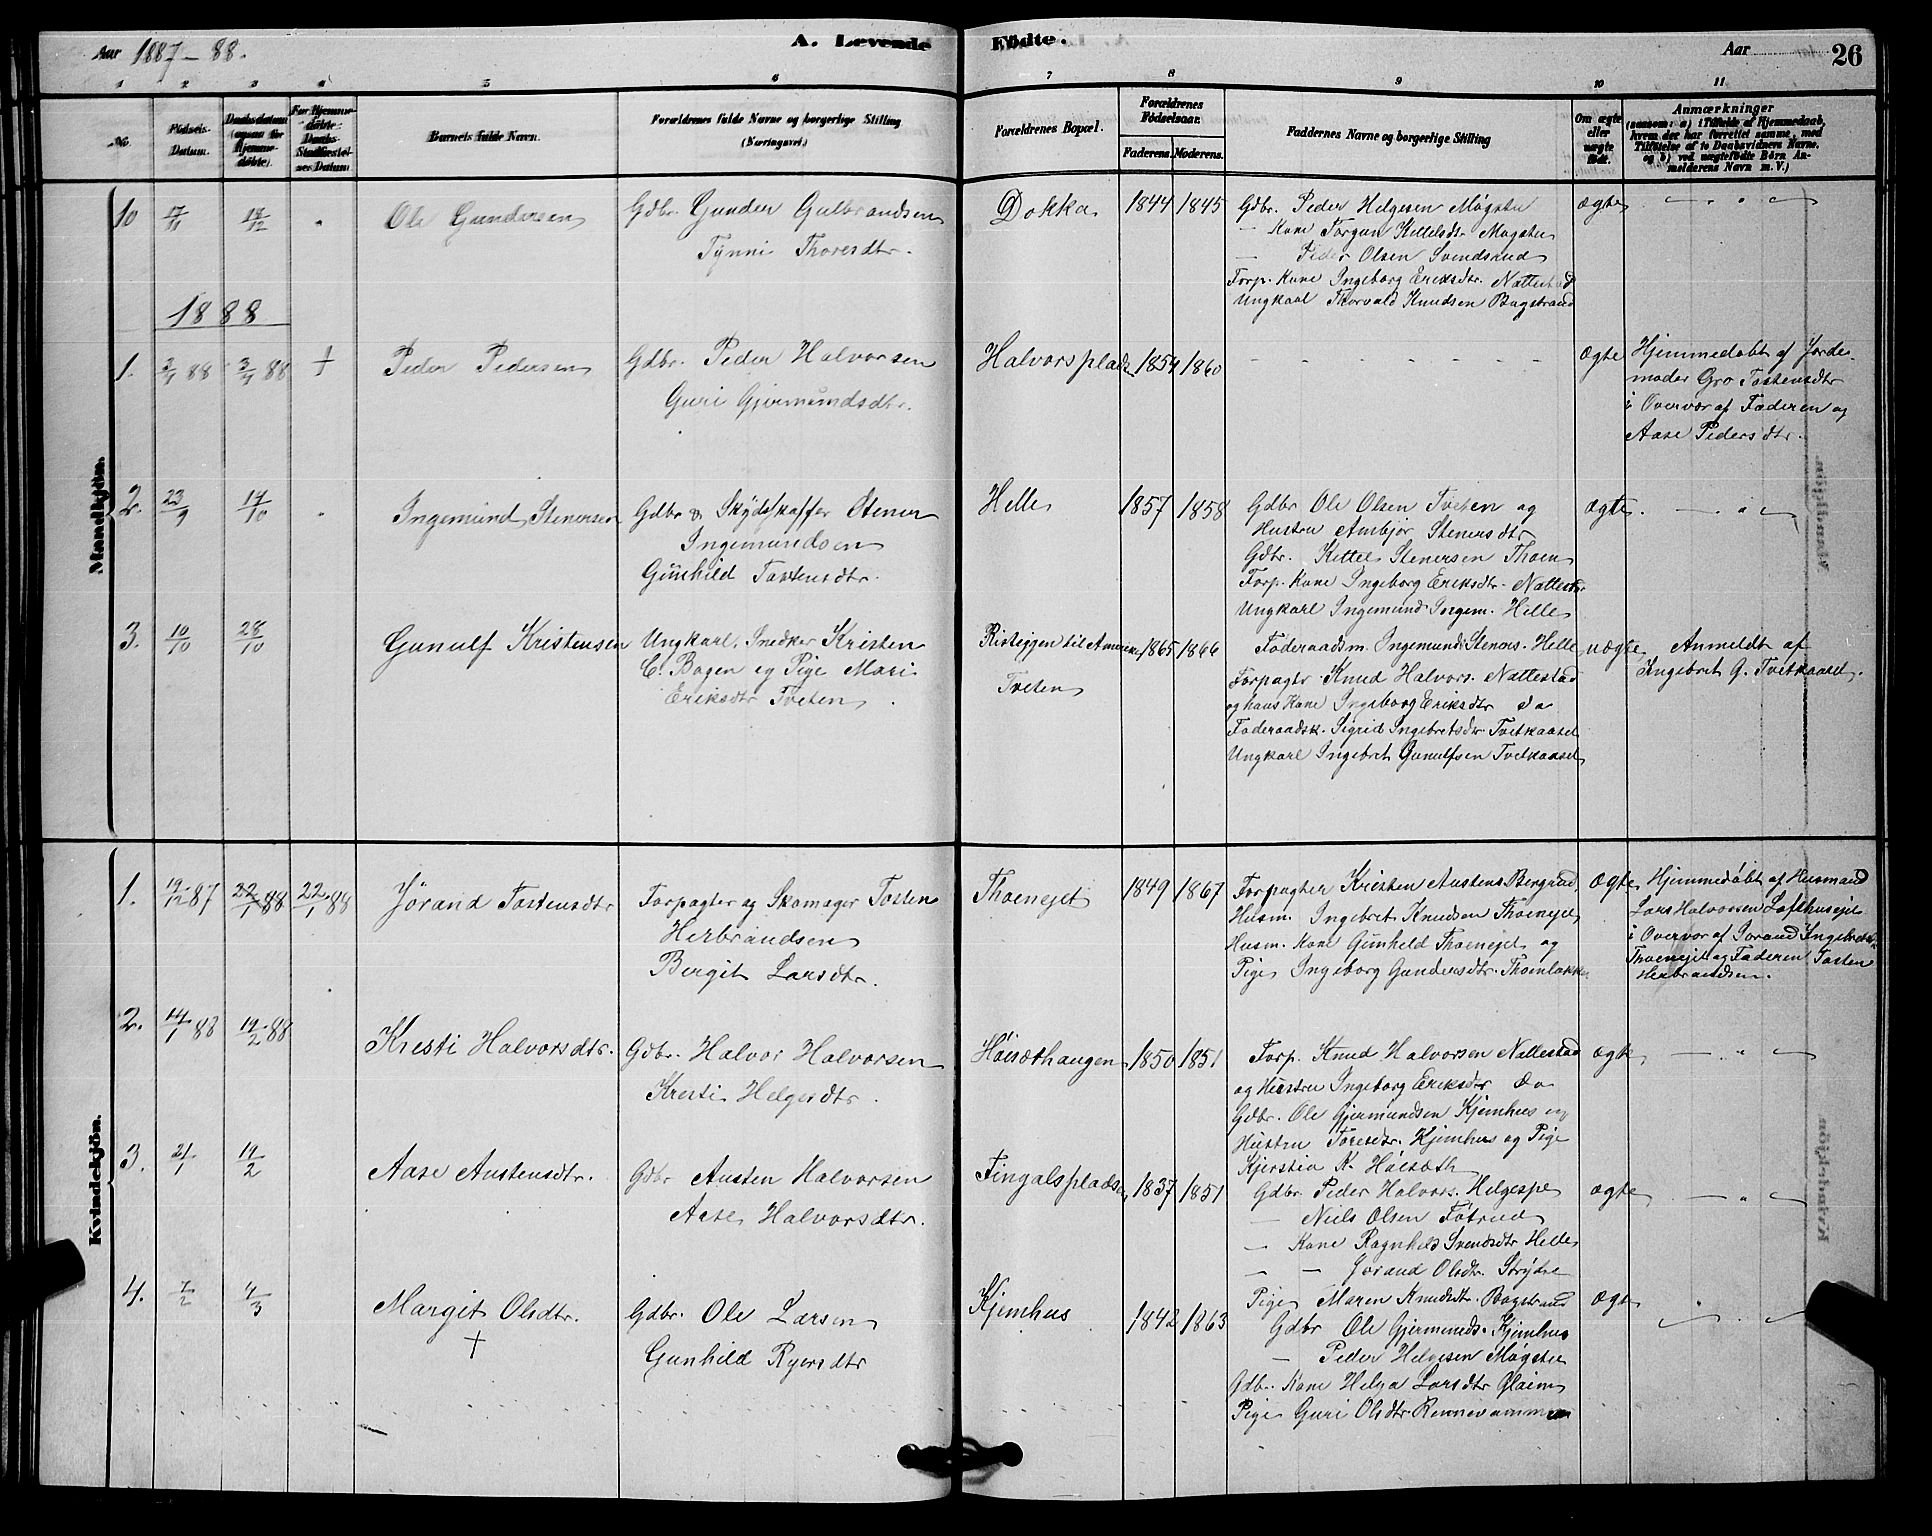 Aar 1887-88.
A. Levende Fødte.
Aar
26
1 2 3 4 5 6 7 8 9 10 11
No.
Fødsels-Datum.
Daabsdatum (ogsaa for Hjemmedøbte).
For Hjemmedøbte: Daabs Stadfæstelses Datum
Barnets fulde Navn.
Forældrenes fulde Navne og borgerlige Stilling
(Næringsvei.)
Forældrenes Bopæl.
Forældrenes Fødselsaar.
Faderens. Moderens.
Faddernes Navne og borgerlige Stilling
Om ægte eller uægte født.
Anmærkninger
(saasom: a) i Tilfælde af Hjemmedaab, hvem der har forrettet samme, med Tilføielse af to Daabsvidners Navne, og b) ved uægtefødte Børn Anmelderens Navn m. V.)
Mandkjøn.
10 17/11 18/12 Ole Gundersen
Gdbr. Gunder Gulbrandsen
Tynni Thoresdtr.
Dokka 1844 1845
Gdbr. Peder Helgesen Møgster
— Kone Torgun Kittelsdtr Møgster
— Peder Olsen Svendsrud
Forp. Kone Ingeborg Eriksdtr. Nattestad
Ungkarl Thorvald Knudsen Bagstrand
ægte
1888
1. 3/4 88 3/4 88 + Peder Pedersen
Gdbr. Peder Halvorsen
Guri Gjermundsdtr.
Halvorsplads 1854 1860
ægte
Hjemmedøbt af Jorde-
moder Gro Tostensdtr
i Overvær af Faderen og
Aase Pedersdtr.
2. 23/9 14/10 Ingemund Stenersen
Gdbr & Skydsskaffer Stener
Ingemundsen
Gunhild Tostensdtr.
Helle 1857 1858
Gdbr Ole Olsen Tveten og
Hustru Ambjør Stenersdtr
Gdbr. Kittel Stenersen Thoen
Forp. Kone Ingeborg Eriksdtr. Nattestad
Ungkarl Ingemund Ingem. Helle
ægte
3. 10/10 28/10 Gunulf Kristensen
Ungkarl, Snedker Kristen
C. Bagen og Pige Mari
Eriksdtr Tveten
til Amerika 1865 1866
Tveten
Føderaadsm. Ingemund Steners. Helle
Forpagter Knud Halvors. Nattestad
og hans Kone Ingeborg Eriksdtr do
Føderaadsk. Sigrid Ingebretsdtr Tvetkaasel
Ungkarl Ingebret Gunulfsen Tvetkaasel
uægte
Anmeldt af
Ingebret G. Tvetkaasel.
Kvindekjøn.
1. 19/12 87 22/1 88 22/1 88 Jørand Tostensdtr
Forpagter og Skomager Tosten
Herbrandsen
Bergit Larsdtr.
Thoenejet 1849 1867
Forpagter Kristen Austens. Bergrud
Husm. Ingebret Knudsen Thoenejet
Husm. Kone Gunhild Thoenejet og
Pige Ingeborg Gundersdtr. Thoenløkken
ægte
Hjemmedøbt af Husmand
Lars Halvorsen Lofthuseje
i Overvær af Jorand Ingebretsdtr
Thoenejet og Faderen Tosten
Herbrandsen.
2. 14/1 88 19/2 88 Kresti Halvorsdtr.
Gdbr. Halvor Halvorsen
Kresti Helgesdtr.
Høisæthaugen 1850 1851
Forp. Knud Halvorsen Nattestad
og Hustru Ingeborg Eriksdtr do
Gdbr. Ole Gjermundsen Kjemhus og
Hustru Toresdtr. Kjemhus og Pige
Kjerstin K. Høisæth
ægte
3. 21/1 19/2 Aase Austensdtr.
Gdbr Austen Halvorsen
Aase Halvorsdtr.
Fingalspladsen 1837 1851
Gdbr. Peder Halvors. Helgespe
— Niels Olsen Føtrud
— Kone Ragnhild Svendsdtr Helle
— — Jorand Olsdtr. Strydse
Pige Maren Knudsdtr. Bagstrand
ægte
4. 7/2 4/3 Margit Olsdtr.
+
Gdbr. Ole Larsen
Gunhild Ryersdtr
Kjemhus 1842 1863
Gdbr Ole Gjermunds. Kjemhus
— Peder Helgesen Møgster
Gdbr. Kone Helga Larsdtr Glaim
Pige Guri Olsdtr Rennevammen
ægte